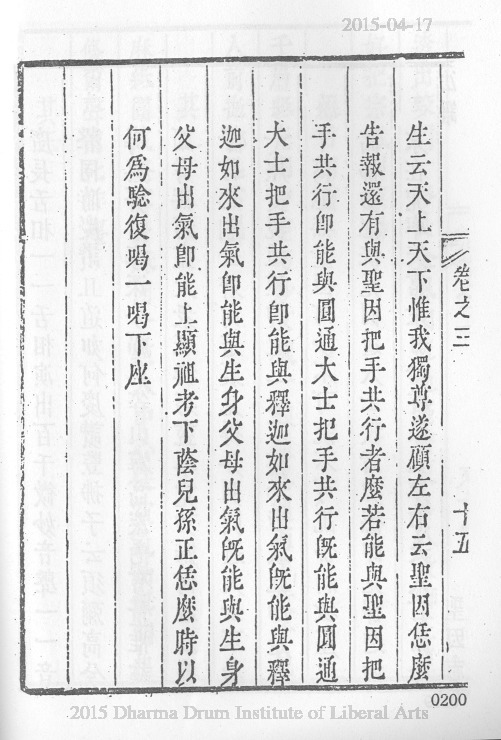 2015-04-17
卷之三
十五
生云天上天下惟我獨尊遂顧左右云聖因恁麼
告報還有與聖因把手共行者麼若能與聖因把
手共行卽能與圓通大士把手共行旣能與圓通
大士把手共行卽能與釋迦如來出氣旣能與釋
迦如來出氣卽能與生身父母出氣旣能與生身
父母出氣卽能上顯祖考下蔭兒孫正恁麼時以
何爲驗復喝一喝下座
0200
2015 Dharma Drum Institute of Liberal Arts